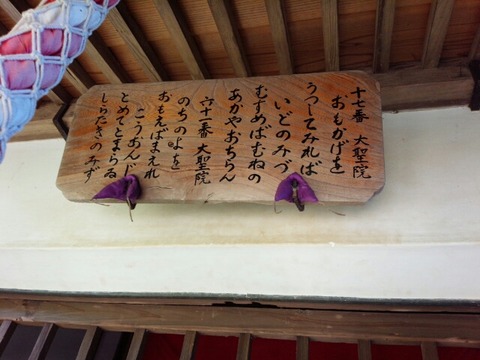 十七番 大聖院
おもかげを
うつしてみれば
いどのみづ
むすめばむねの
あかやおちらん
六十一番 大聖院
のちのよを
おもえばまえれ
こうおんじ
とめてとまらゐ
しらたきのみず